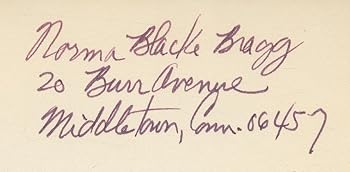 Norma Blacke Bragg
20 Burr Avenue
Middletown, Conn. 06457